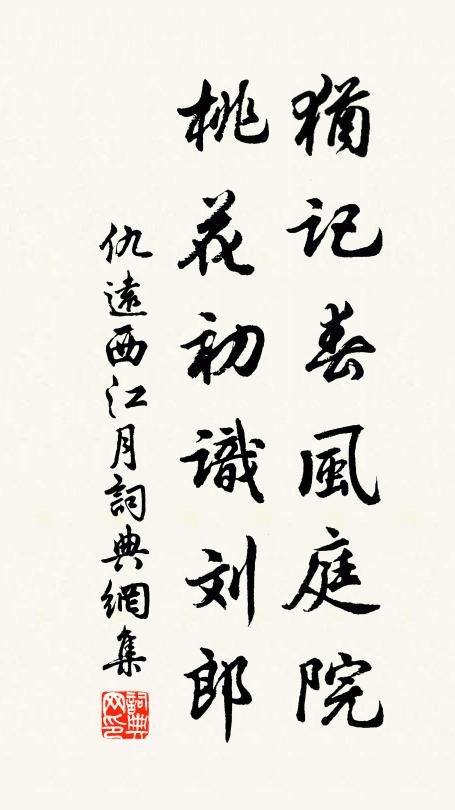 猶記春風庭院
桃花初識刘郎
仇遠西江月詞典網集
詞典网印